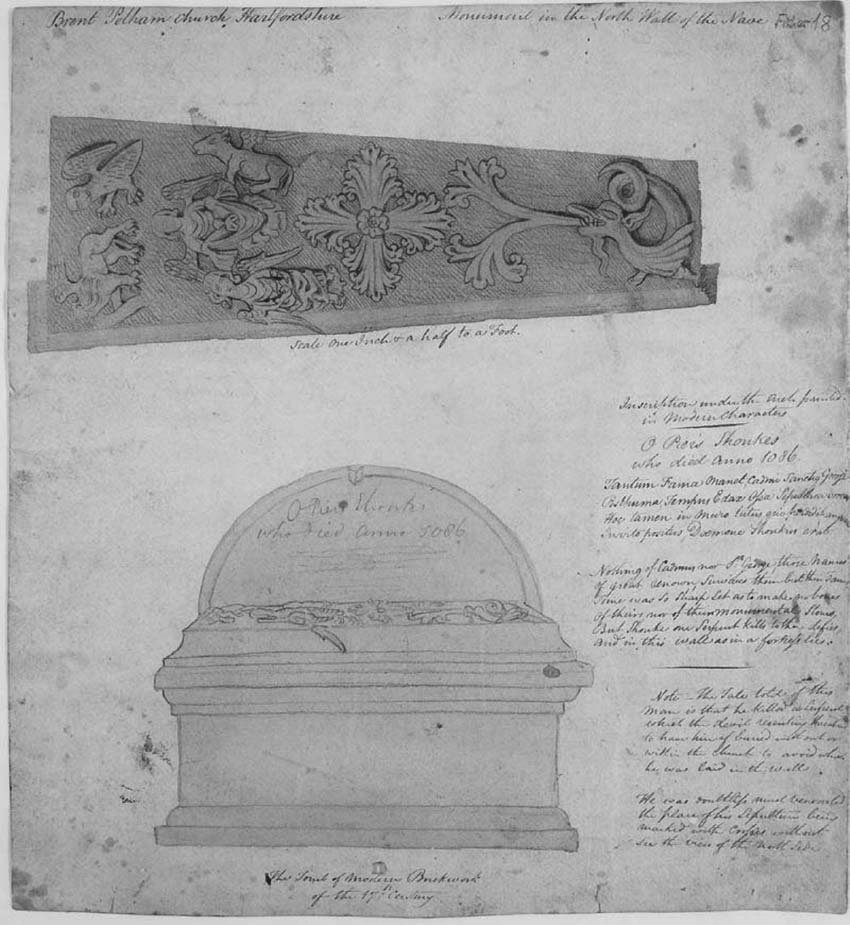 Brent Pelham church Hartfordshire
Monument in the North Wall of the Nave 18
Scale One Inch & a half to a Foot.
Inscription under the Arch painted
in Modern Characters
O Piers Shonkes
who died Anno 1086
Tantum Fama Manet, Cadmi Sanctiq Georgi
Posthuma, Tempus Edax Ossa Sepulchra vorat
Hoc tamen in Muro tutus qui
Invito positus Dæmone Shonkus erat
Nothing of Cadmus nor St. George, those Names
of great renown, Survives them but their fames
Time was so Sharp Set as to make no bones
of theirs nor of their monumental Stones,
But Shonke one Serpent kills to the defies
and in this wall as in a fortress lies.
Note The Tale told of this
Man is that he killed a Serpent
which the devil resenting
to have him if buried without or
within the church to avoid which
he was laid in the wall.
He was doubtless much venerated
the place of his Sepulture being
marked with Crosses without
See the view of the north Side
O Piers Shonkes
who died Anno 1086
The Tomb of Modern Brickwork
of the 17th Century